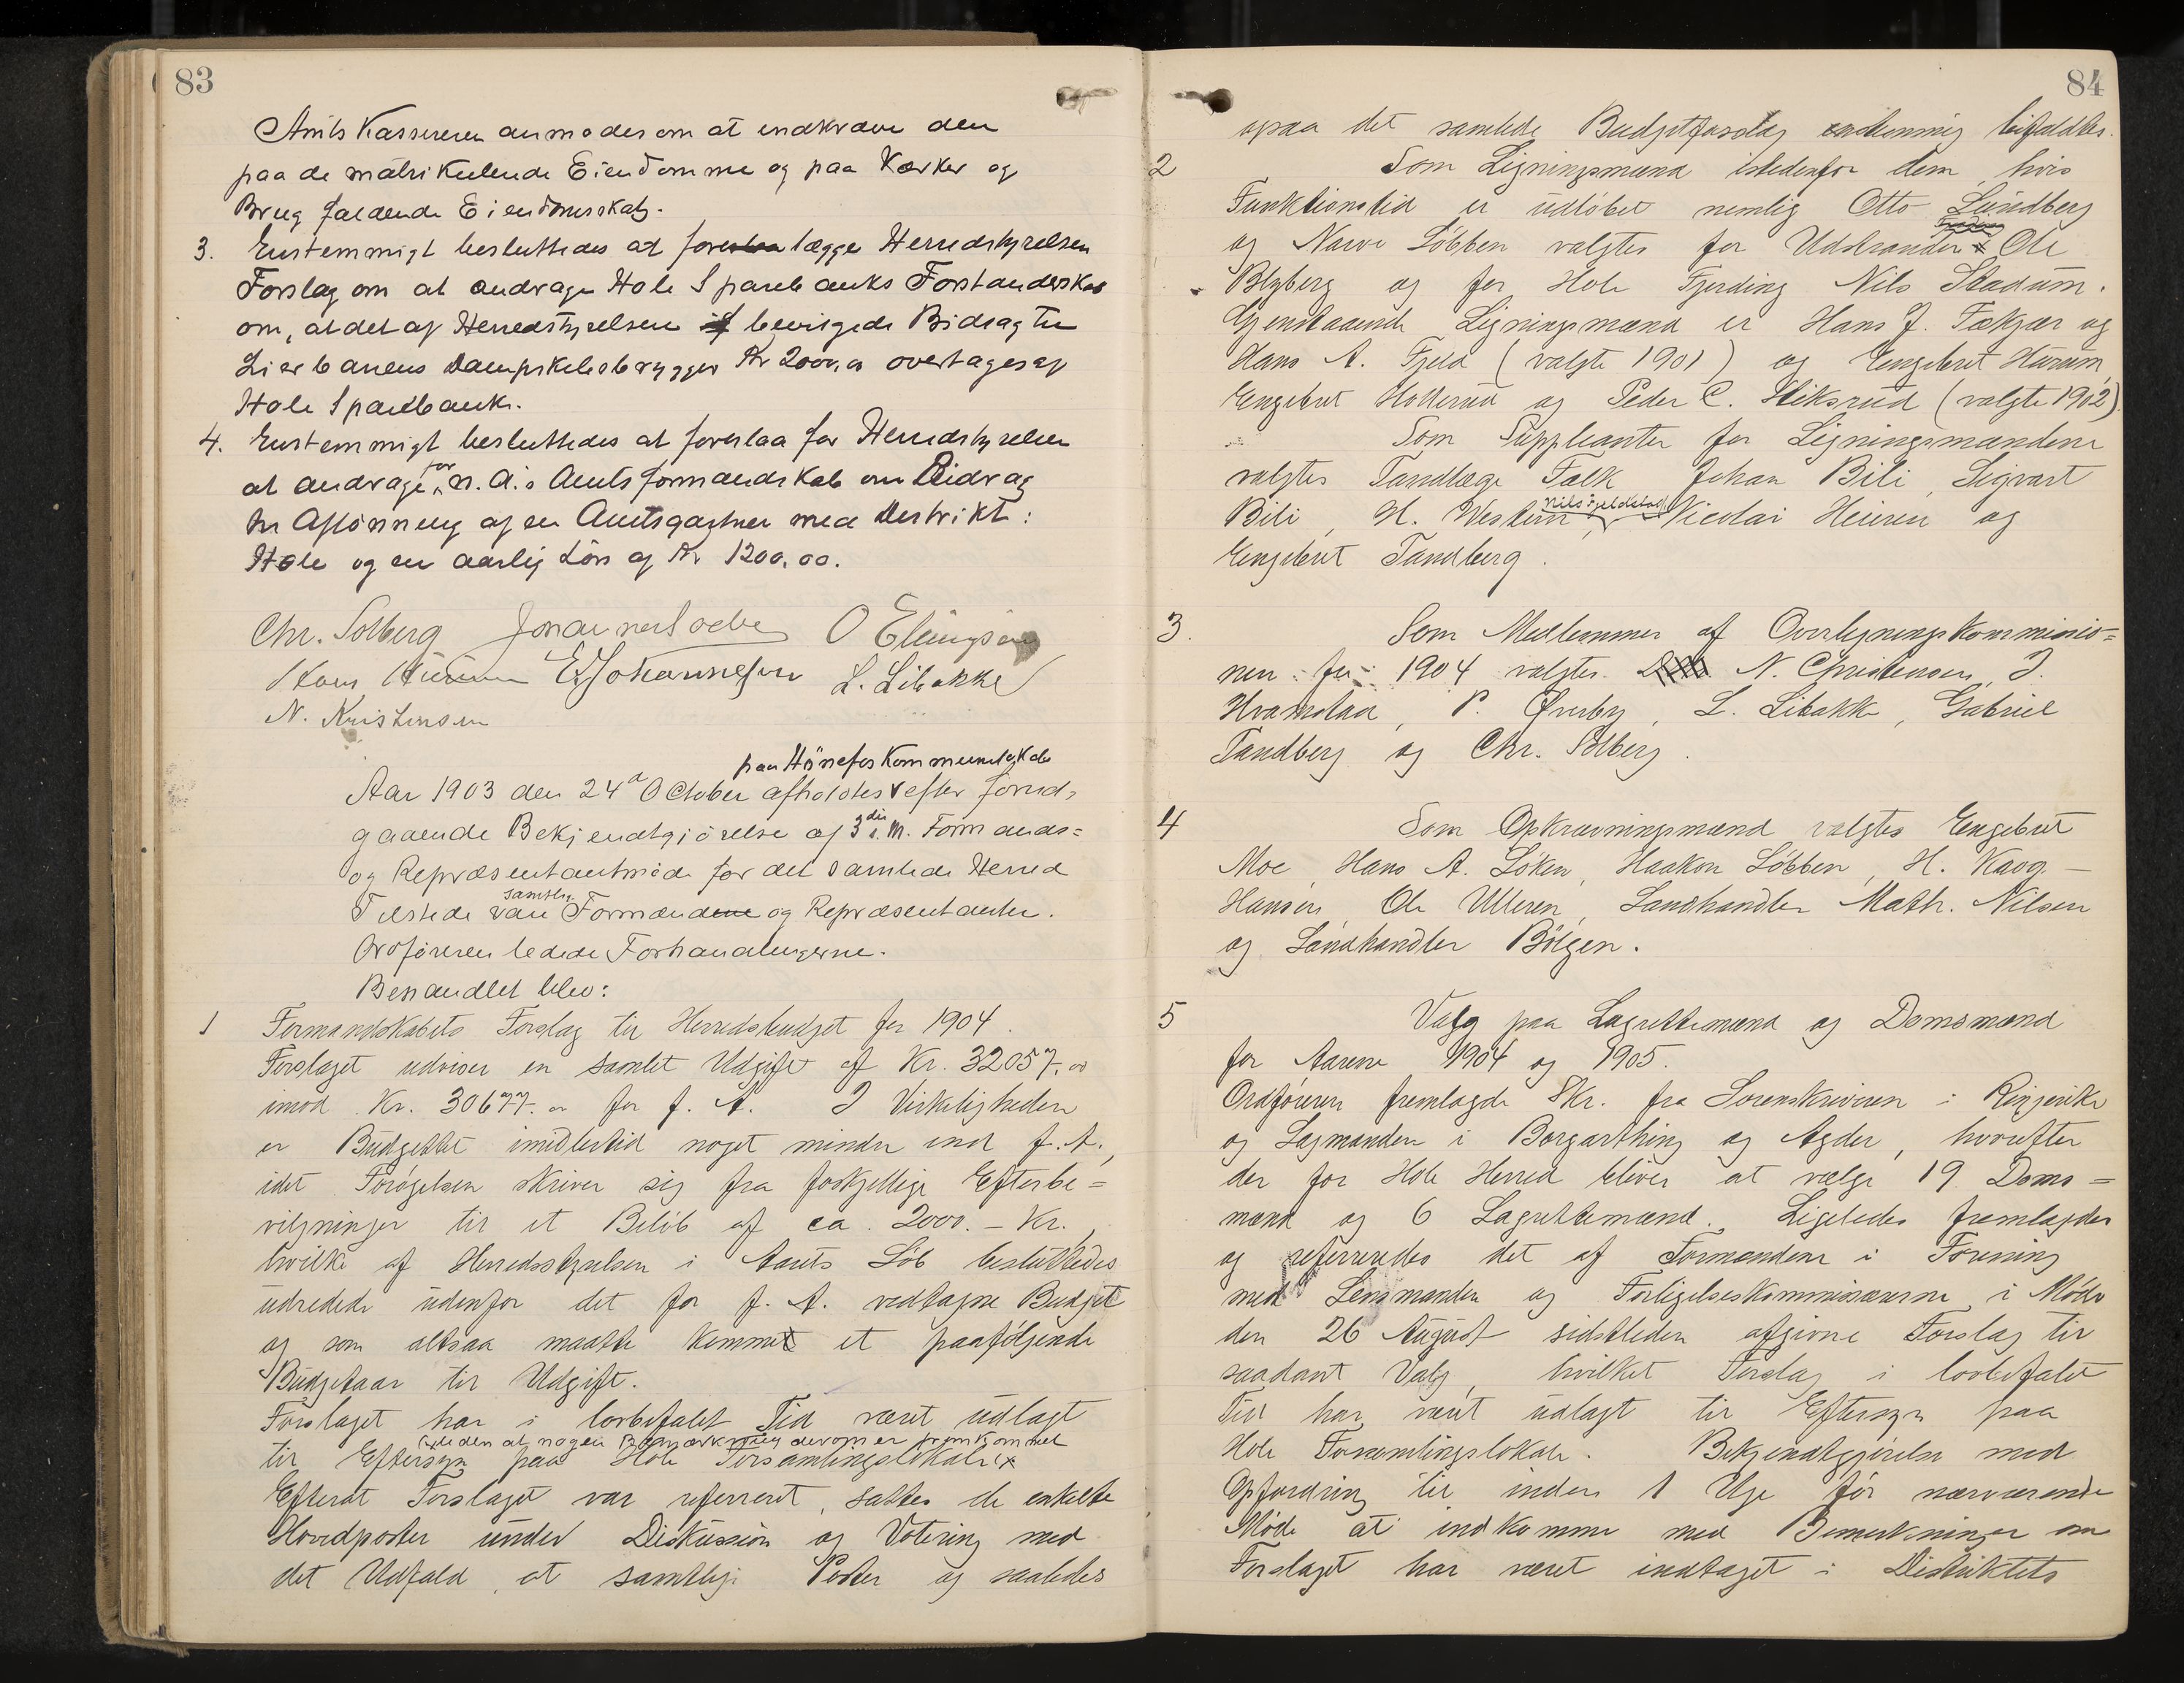 83
Amtskassereren anmodes om at indkræve den
paa de matrikulerede Eiendomme og paa Værker og
Brug faldende Eiendomsskat.
3. Enstemmigt besluttedes at foreslaa lægge Herredstyrelsen
Forslag om at andrage Hole Sparebanks Forstanderskab
om, at det af Herredstyrelsen bevilgede Bidrag til
Lierbanens Dampskibsbrygger Kr 2000,00 overtages af
Hole Sparebank.
4. Enstemmigt besluttedes at foreslaa for Herredstyrelsen
at andrage for n. A.s Amtsformandskab om Bidrag
til Aflønning af en Amtsgartner med Distrikt:
Hole og en aarlig Løn af Kr 1200.00.
Chr. Solberg O Elingsen
Hans Hurum E Johannessen L. Libakke
N. Kristensen
paa Hönefos Kommunelokale
Aar 1903 den 24d October afholdtes efter forud-
gaaende Bekjendtgjörelse af 3die d. M. Formands-
og Repræsentantmöde for det samlede Herred
Tilstede vare samtlige Formændene og Repræsentanter.
Ordföreren ledede Forhandlingerne.
Behandlet blev:
1 Formandskabets Forslag til Herredsbudget for 1904.
Forslaget udviser en samlet Udgift af Kr. 32057.00
imod Kr. 30677.00 for f. A. I Virkeligheden
er Budgettet imidlertid noget mindre end f. A.,
idet Forögelsen skriver sig fra forskjellige Efterbe=
vilgninger til et Belöb af ca. 2000.- Kr.,
hvilke af Herredsstyrelsen i Aarets Löb besluttedes
udredede udenfor det for f. A. vedtagne Budget
og som altsaa maatte komme et paafölgende
Budgetaar til Udgift.
Forslaget har i lovbefalet Tid været udlagt
(uden at nogen Bemærkning derom er fremkommet
til Eftersyn paa Hole Forsamlingslokale (x
Efterat Forslaget var refereret, sattes de enkelte
Hovedposter under Diskussion og Votering med
det Udfald, at samtlige Poster og saaledes
84
ogsaa det samlede Budgetforslag enstemmig bifaldtes.
2 Som Ligningsmænd istedenfor dem, hvis
Funktionstid er udlöbet nemlig Otto Lundberg
og Narve Löbben valgtes for Udstranden Ole
Blyberg og for Hole Fjerding Nils Stadum.
Gjenstaaende Ligningsmænd er Hans J. Fækjær og
Hans A. Fjeld (valgte 1901) og Engebret Hurum,
Engebret Hollerud og Peder C. Hiksrud (valgte 1902).
Som Suppleanter for Ligningsmændene
valgtes Tandlæge Falk, Johan Bili, Sigvart
Bili, H. Western, Nils Gjeldstad, Nicolai Heieren og
Engebret Tandberg.
3. Som Medlemmer af Overligningskommissio=
nen for 1904 valgtes N. Christensen, J.
Hvamstad, P. Överby, L. Libakke, Gabriel
Tandberg og Chr. Solberg.
4 Som Opkrævningsmænd valgtes Engebret
Moe, Hans A. Löken, Haakon Löbben, H. Kaag-
Hansen, Ole Ulleren, Landhandler Math. Nilsen
og Landhandler Bölgen.
5 Valg paa Lagrettemænd og Domsmænd
for Aarene 1904 og 1905.
Ordföreren fremlagde Skr. fra Sorenskriveren i Ringerike
og Lagmanden i Borgarthing og Agder, hvorefter
der for Hole Herred bliver at vælge 19 Doms=
mænd og 6 Lagrettemænd. Ligeledes fremlagdes
og refereredes det af Formændene i Forening
med Lensmanden og Forligelseskommissærerne i Möde
den 26 August sidstleden afgivne Forslag til
saadant Valg, hvilket Forslag i lovbefalet
Tid har været udlagt til Eftersyn paa
Hole Forsamlingslokale. Bekjendtgjörelse med
Opfordring til inden 1 Uge för nærværende
Möde at indkomme med Bemerkninger om
Forslaget har været indtaget i Distriktets